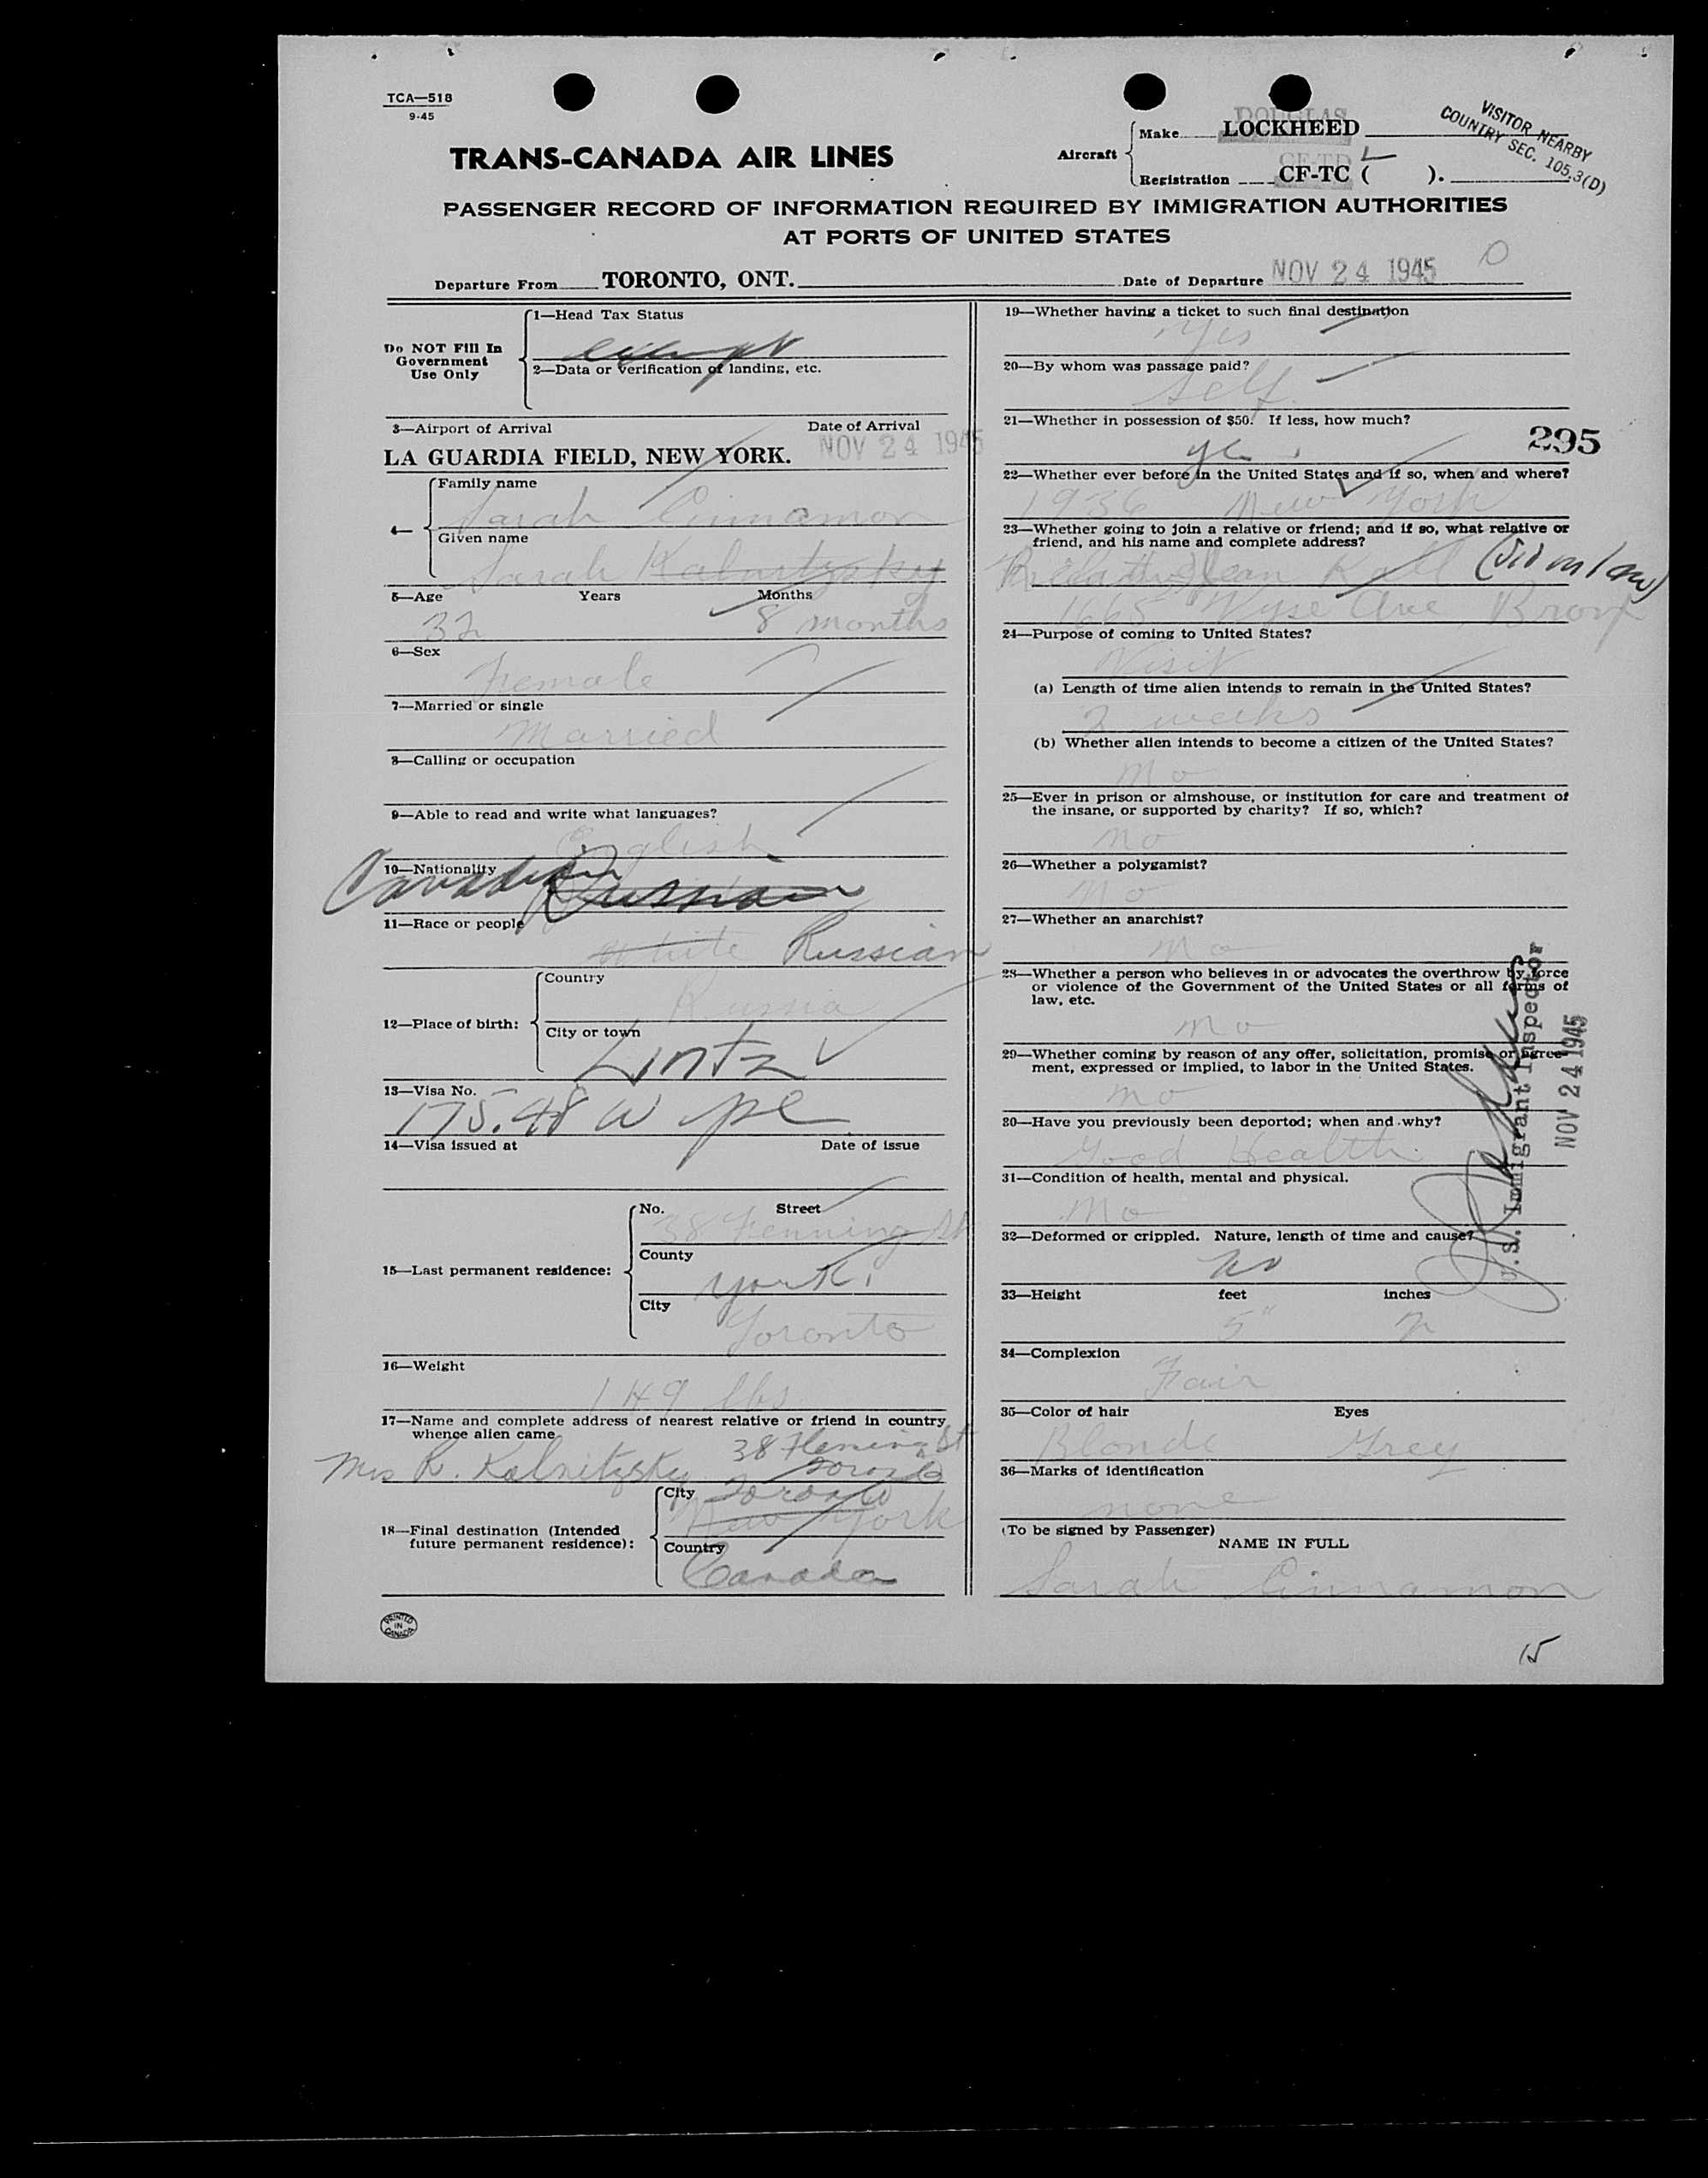 TCA—518
9-45
TRANS-CANADA AIR LINES
Aircraft
Make DOUGLAS LOCKHEED
Registration CF-TD CF-TC ( L ).
VISITOR NEARBY
COUNTRY SEC. 105.3(D)
PASSENGER RECORD OF INFORMATION REQUIRED BY IMMIGRATION AUTHORITIES
AT PORTS OF UNITED STATES
Departure From TORONTO, ONT. Date of Departure NOV 24 1945
Do NOT Fill In
Government
Use Only
1—Head Tax Status
exempt
2—Data or verification of landing, etc.
3—Airport of Arrival Date of Arrival
LA GUARDIA FIELD, NEW YORK. NOV 24 1945
4—
Family name
Sarah Cinnamon
Given name
Sarah Kalnitzsky
5—Age Years Months
32 8 months
6—Sex
Female
7—Married or single
Married
8—Calling or occupation
9—Able to read and write what languages?
English
10—Nationality
Canadian Russian
11—Race or people
White Russian
12—Place of birth:
Country
Russia
City or town
Lintz
13—Visa No.
175.48 W
14—Visa issued at Date of issue
15—Last permanent residence:
No. Street
38 Fenning St
County
York
City
Toronto
16—Weight
149 lbs
17—Name and complete address of nearest relative or friend in country
whence alien came
Mrs R. Kalnitzsky 38 Fleming St
Toronto
18—Final destination (Intended
future permanent residence):
City Toronto
New York
Country
Canada
PRINTED
IN
CANADA
19—Whether having a ticket to such final destination
Yes
20—By whom was passage paid?
Self
21—Whether in possession of $50. If less, how much?
yes
295
22—Whether ever before in the United States and if so, when and where?
1936 New York
23—Whether going to join a relative or friend; and if so, what relative or
friend, and his name and complete address?
Jean (sis in law)
1665 Vyse Ave Bronx
24—Purpose of coming to United States?
Visit
(a) Length of time alien intends to remain in the United States?
2 weeks
(b) Whether alien intends to become a citizen of the United States?
No
25—Ever in prison or almshouse, or institution for care and treatment of
the insane, or supported by charity? If so, which?
No
26—Whether a polygamist?
No
27—Whether an anarchist?
No
28—Whether a person who believes in or advocates the overthrow by force
or violence of the Government of the United States or all forms of
law, etc.
No
29—Whether coming by reason of any offer, solicitation, promise or agree-
ment, expressed or implied, to labor in the United States.
No
30—Have you previously been deported; when and why?
Good Health
31—Condition of health, mental and physical.
No
32—Deformed or crippled. Nature, length of time and cause?
no
33—Height feet inches
5" 2
34—Complexion
Fair
35—Color of hair Eyes
Blonde Grey
36—Marks of identification
none
(To be signed by Passenger)
NAME IN FULL
Sarah Cinnamon
U.S. Immigrant Inspector
NOV 24 1945
15